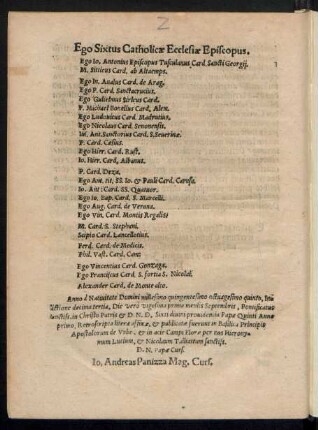 Ego Sixtus Catholicæ Ecclesiæ Episcopus.
Ego Io. Antonius Episcopus Tusculanus Card. Sancti Georgij.
M. Sitticus Card. ab Altaemps.
Ego In. Aualus Card. de Arag.
Ego P. Card. Sanctacrucius.
Ego Gulielmus Sirletus Card.
F. Michael Bonellus Card. Alex.
Ego Ludouicus Card. Madrutius.
Ego Nicolaus Card. Senonensis.
Iul. Ant. Sanctorius Card. S. Seuerinæ.
P. Card. Cæsius.
Ego Hier. Card. Rust.
Io. Hier. Card. Albanus.
P. Card. Deza.
Ego Ant. tit. SS. Io. & Pauli Card. Carafa.
Io. Ant. Card. SS. Quatuor.
Ego Io. Bap. Card. S. Marcelli.
Ego Aug. Card. de Verona.
Ego Vin. Card. Montis Regalis.
M. Card. S. Stephani.
Scipio Card. Lancellotius.
Ferd. Card. de Medicis.
Phil. Vast. Card. Cam.
Ego Vincentius Card. Gonzaga.
Ego Franciscus Card. Sfortia S. Nicolai.
Alexander Card. de Monte alto.
Anno à Natiuitate Domini millesimo quingentesimo octuagesimo quinto, Indictione decima tertia, Die verò vigesimo prima mensis Septembris, Pontificatus
sanctiss. in Christo Patris & D. N. D. Sixti diuina prouidentia Papæ Quinti Anno
primo, Retroscriptæ literæ affixæ, & publicatæ fuerunt in Basilica Principis
Apostolorum de Vrbe, & in acie Campi Floræ per nos Hieronymum
Lucium, & Nicolaum Taliettum sanctiss.
D. N. Papæ Curs.
Io. Andreas Panizza Mag. Curs.